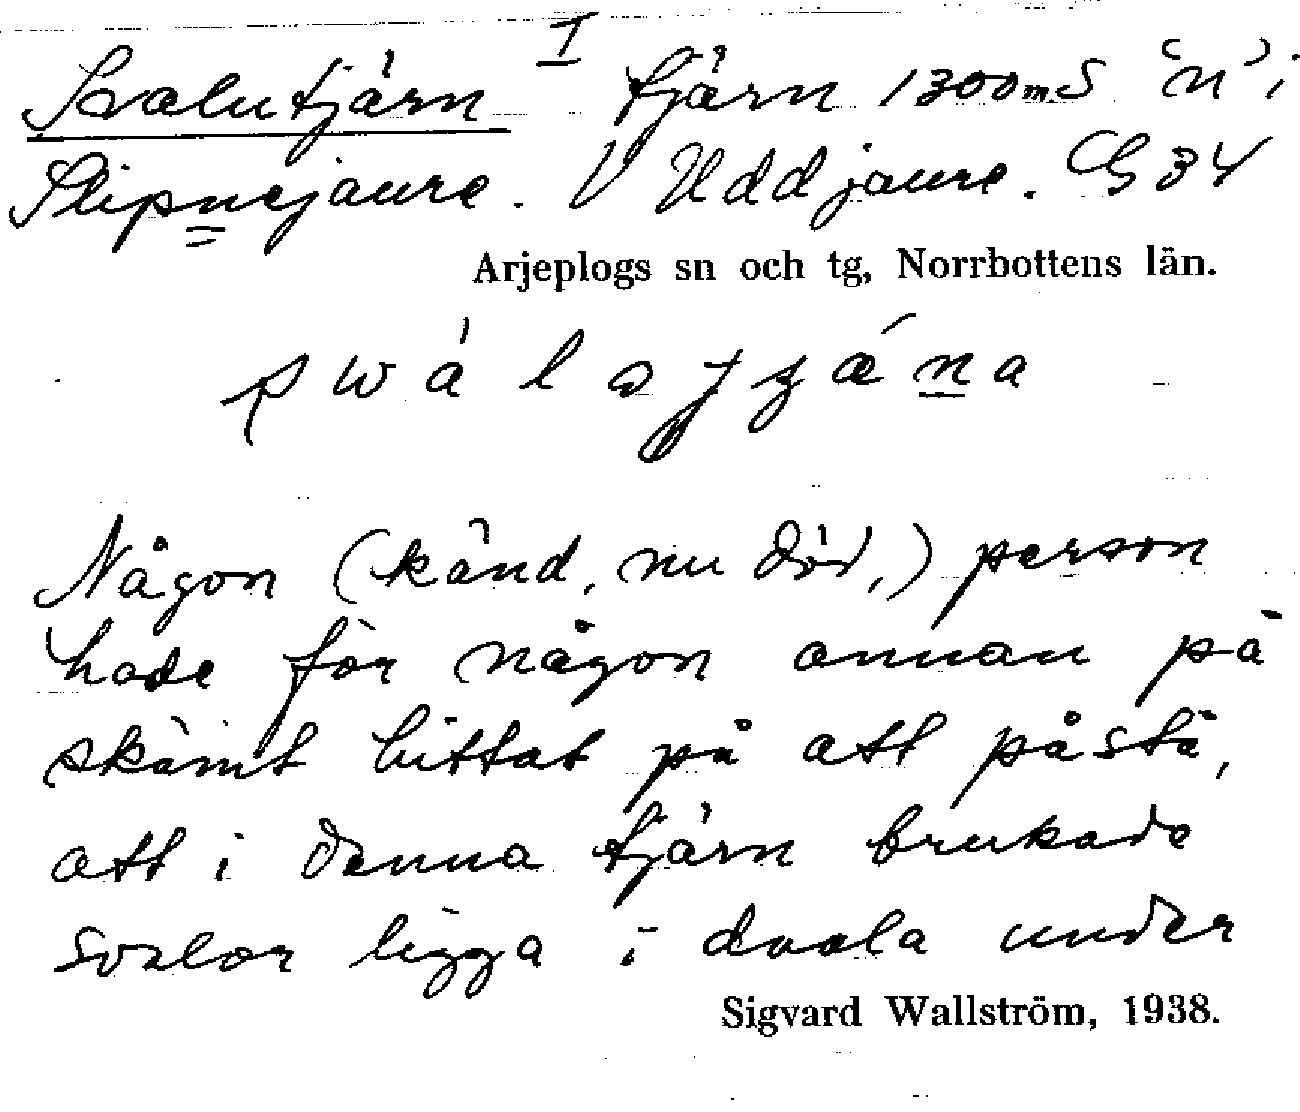 I
Svalutjärn tjärn 1300 m S "n" i
Slipnejaure. V Uddjaure. G 34
Arjeplogs sn och tg, Norrbottens län.
Någon (känd, nu död,) person
hade för någon annan på
skämt hittat på att påstå,
att i denna tjärn brukade
svalor ligga i dvala under
Sigvard Wallström, 1938.